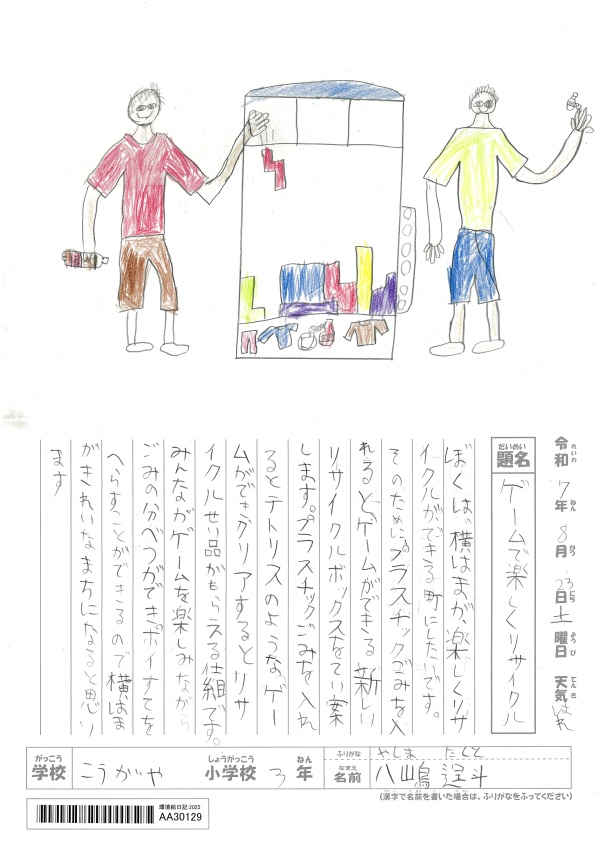 令和7年8月23日土曜日 天気はれ
れいわ ねん がつ にち ようび てんき
だいめい
題名 ゲームで楽しくリサイクル
ぼくは、横はまが、楽しくリサ
イクルが、できる町にしたいです。
そのために、プラスチックごみを入
れると、ゲームができる新しい
リサイクルボックスをてい案
します。プラスチックごみを入れ
るとテトリスのような、ゲー
ムができクリアするとリサ
イクルせい品がもらえる仕組です。
みんながゲームを楽しみながら
ごみの分べつができ。ポイすてを
へらすことができるので横はま
がきれいなまちになると思い
ます
がっこう しょうがっこう ねん
学校 こうがや 小学校 3年
ふりがな やしま たくと
なまえ
名前 八山鳥 逞斗
(漢字で名前を書いた場合は、ふりがなをふってください)
環境絵日記 2025
AA30129